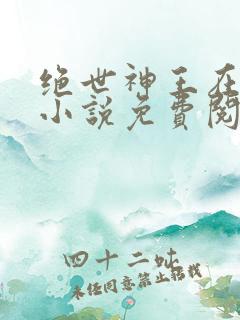 绝世神王在
小説免費閱
四十二吙
未经同意禁止转载